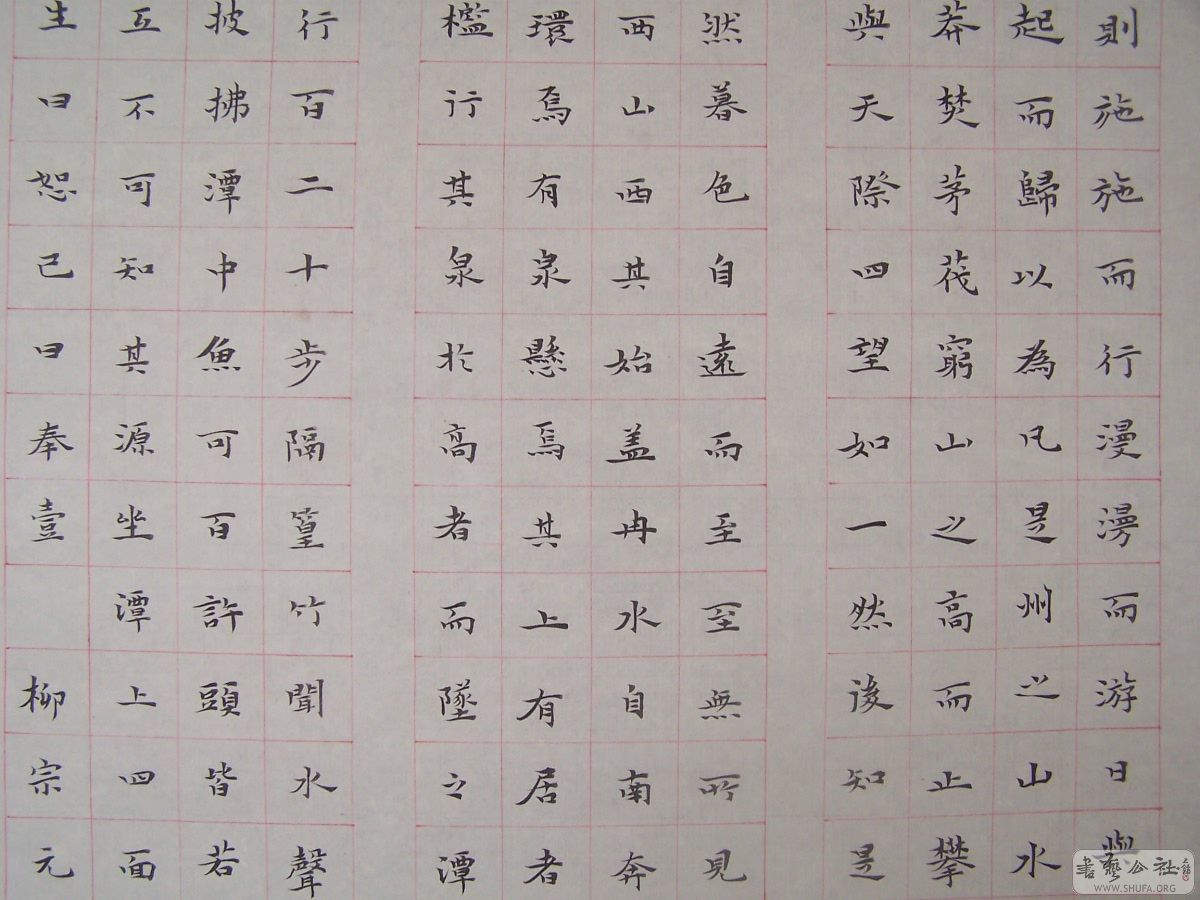 則施施而行漫漫而游日與
起而歸以為凡是州之山水
莽焚茅茷窮山之高而止攀
與天際四望如一然後知是
然暮色自遠而至至無所見
西山西其始盖冉水自南奔
環焉有泉懸焉其上有居者
檻行其泉於高者而墜之潭
行百二十步隔篁竹聞水聲
披拂潭中魚可百許頭皆若
互不可知其源坐潭上四面
生曰恕己曰奉壹 柳宗元
書藝公社
WWW.SHUFA.ORG